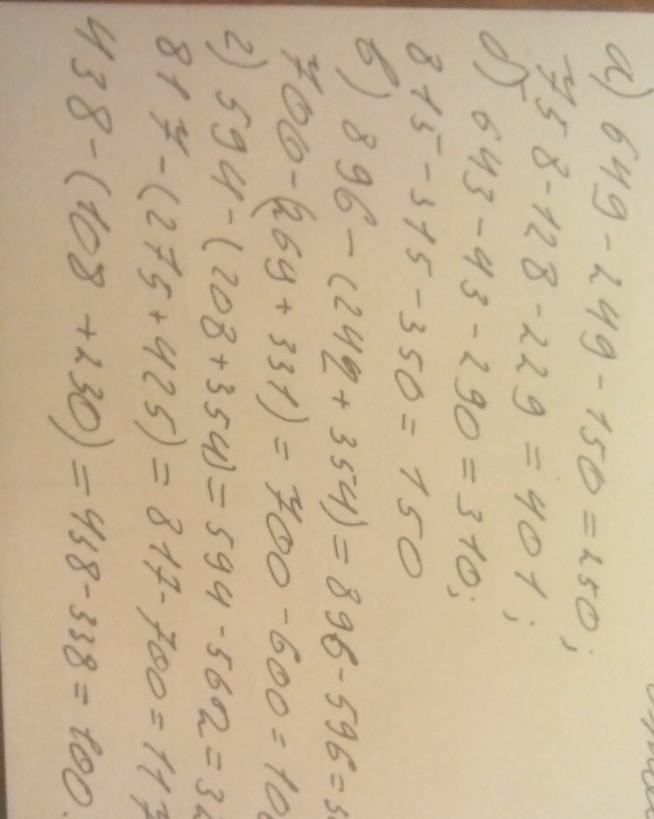 а) 649-249-150=250;
758-128-229=401;
б) 643-43-290=310;
815-315-350=150
в) 896-(242+354)=896-596=3
700-(269+331)=700-600=10
г) 594-(208+354)=594-562=32
817-(275+425)=817-700=117
438-(108+230)=438-338=100.